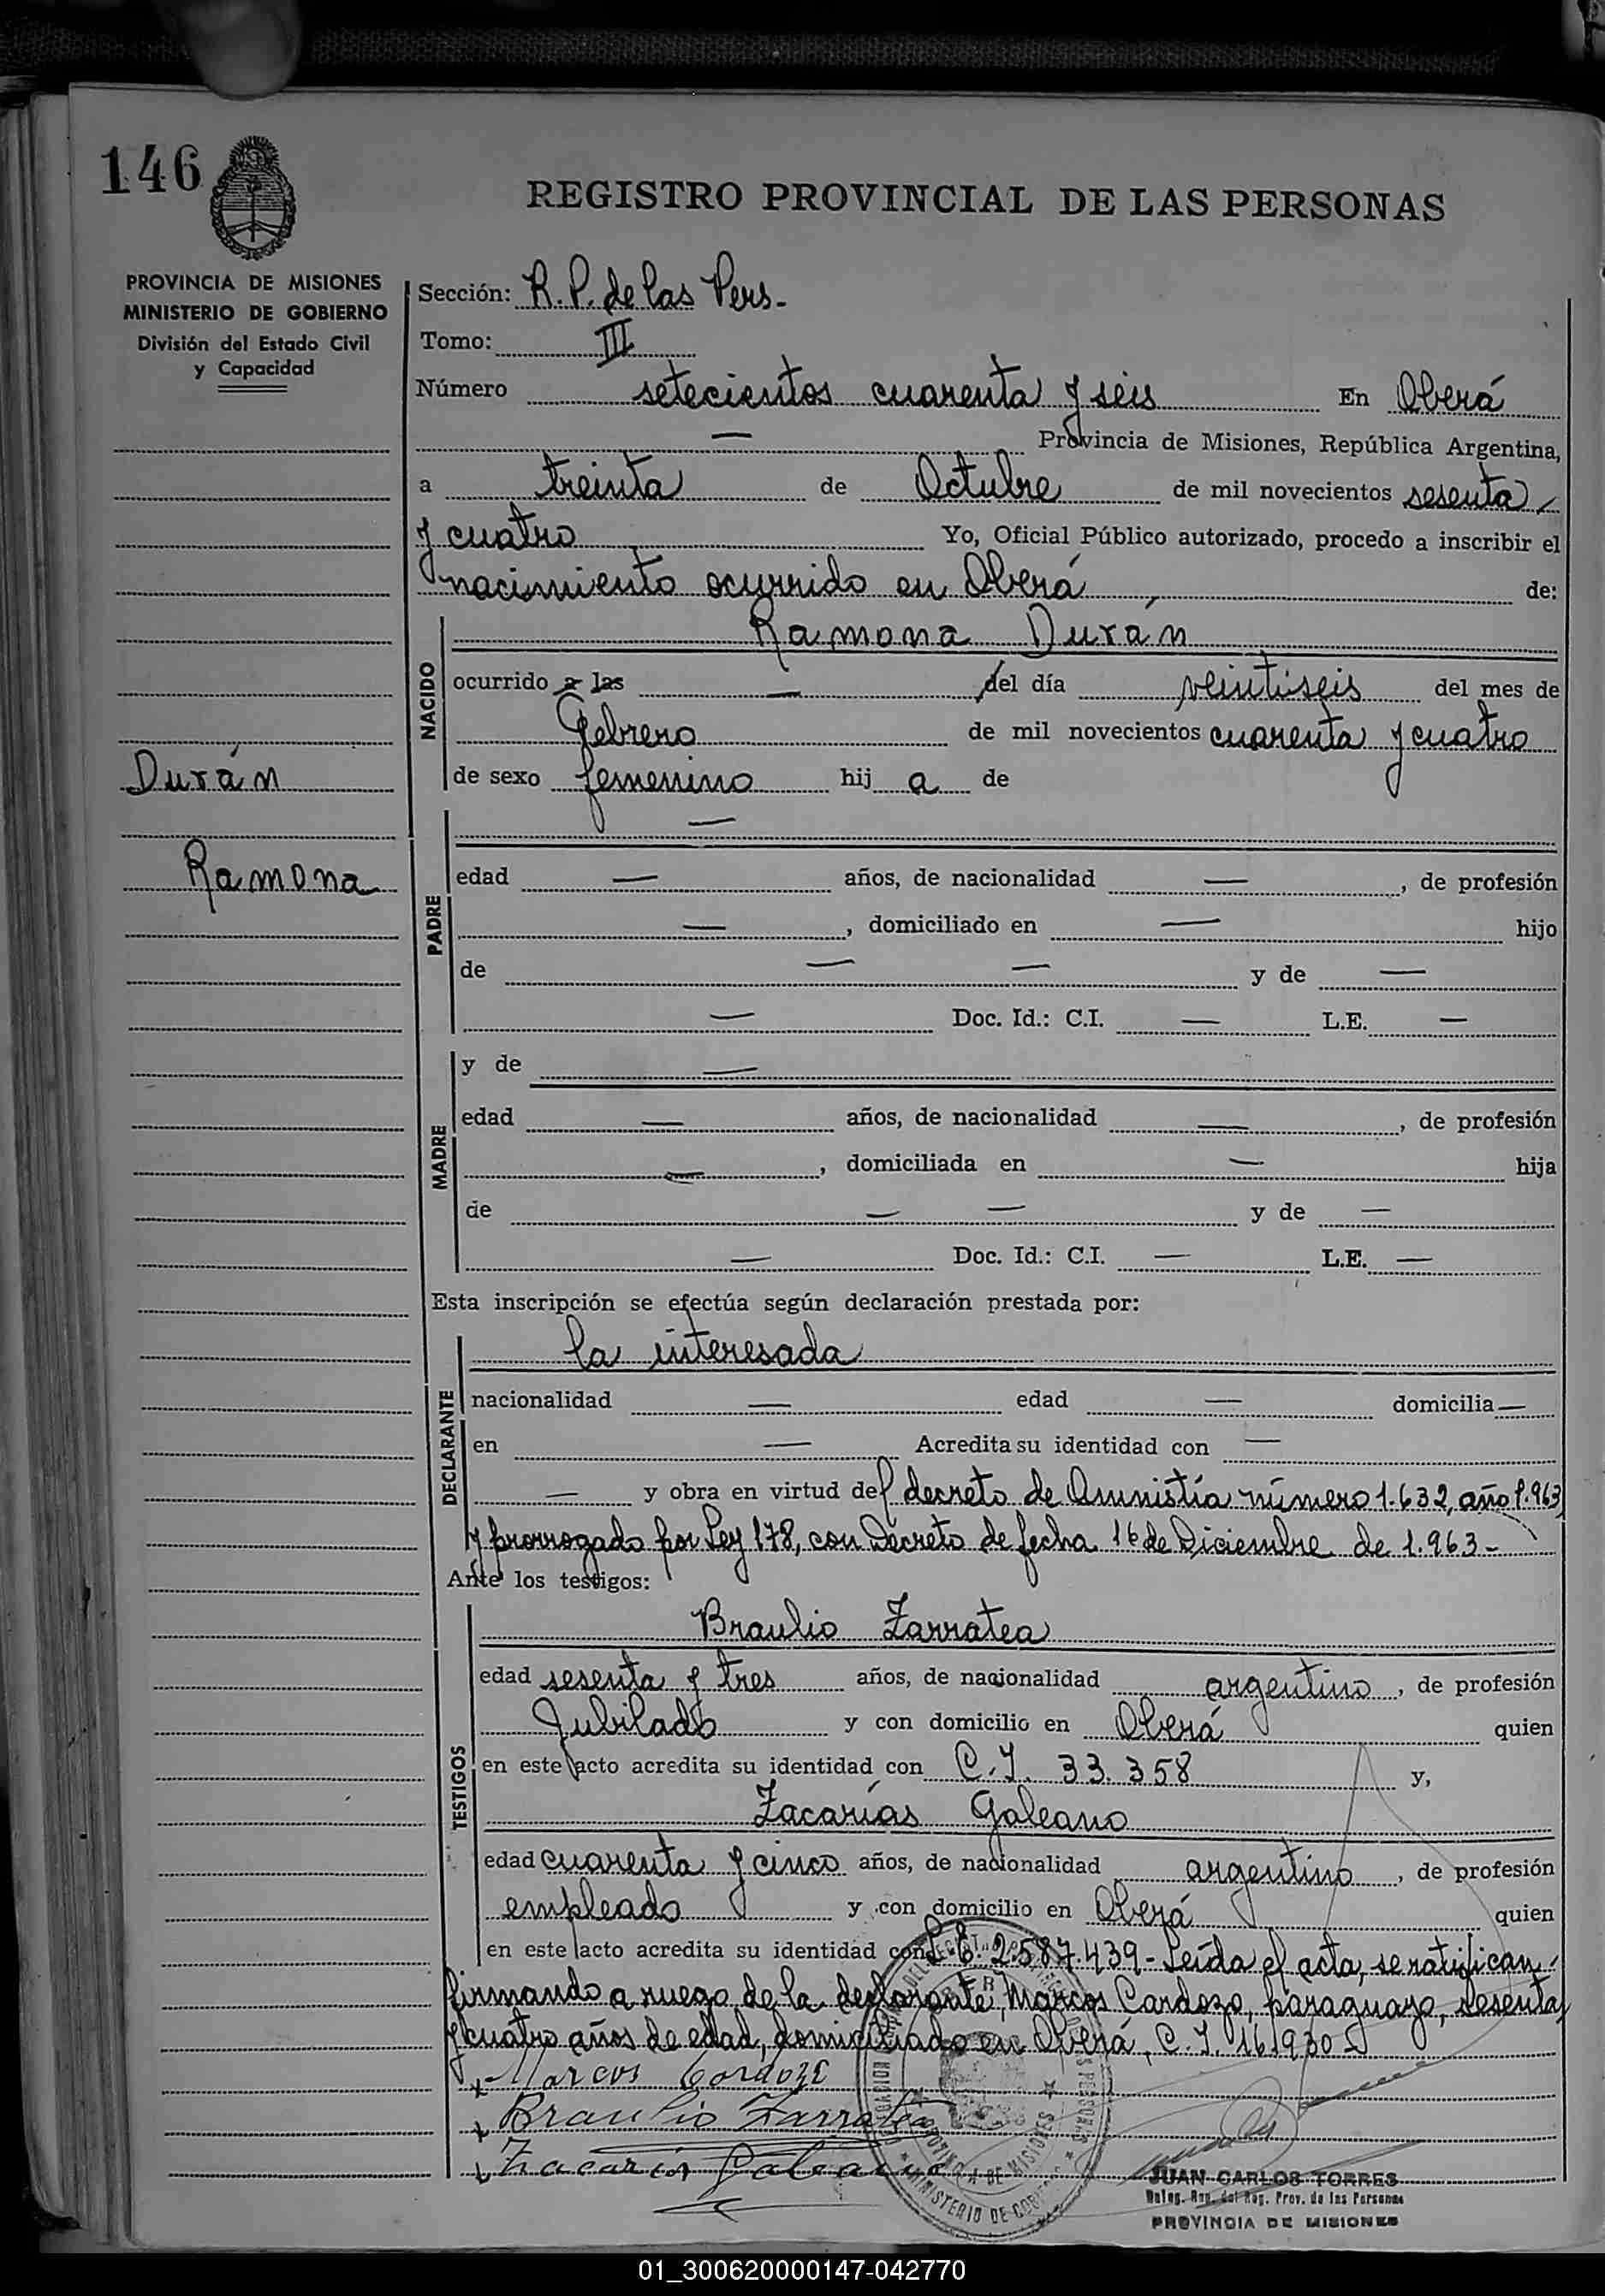 146
REGISTRO PROVINCIAL DE LAS PERSONAS
PROVINCIA DE MISIONES
MINISTERIO DE GOBIERNO
División del Estado Civil
y Capacidad
Durán
Ramona
Sección: R.P. de las Pers-
Tomo: III
Número setecientos cuarenta y seis En Oberá
— Provincia de Misiones, República Argentina,
a treinta de Octubre de mil novecientos sesenta
y cuatro Yo, Oficial Público autorizado, procedo a inscribir el
nacimiento ocurrido en Oberá de:
NACIDO
Ramona Durán
ocurrido a las — del día veintiseis del mes de
Febrero de mil novecientos cuarenta y cuatro
de sexo femenino hij a de
PADRE
—
edad — años, de nacionalidad —, de profesión
—, domiciliado en — hijo
de — — y de —
— Doc. Id.: C.I. — L.E. —
MADRE
y de —
edad — años, de nacionalidad —, de profesión
—, domiciliada en — hija
de — — y de —
— Doc. Id.: C.I. — L.E. —
Esta inscripción se efectúa según declaración prestada por:
DECLARANTE
la interesada
nacionalidad — edad — domicilia —
en — Acredita su identidad con —
— y obra en virtud del decreto de Amnistía número 1.632, año 1.963
y prorrogado por Ley 178, con Decreto de fecha 16 de Diciembre de 1.963-
Ante los testigos:
TESTIGOS
Braulio Zarratea
edad sesenta y tres años, de nacionalidad argentino, de profesión
Jubilado y con domicilio en Oberá quien
en este acto acredita su identidad con C.I. 33.358 y,
Zacarías Galeano
edad cuarenta y cinco años, de nacionalidad argentino, de profesión
empleado y con domicilio en Oberá quien
en este acto acredita su identidad con L.E. 2.587.439- Leída el acta, se ratifican,
firmando a ruego de la declarante, Marcos Cardozo, paraguayo, sesenta
y cuatro años de edad, domiciliado en Oberá, C.I. 161930
x Marcos Cardozo
x Braulio Zarratea
x Zacarias Galeano
JUAN CARLOS TORRES
Prov. de las Personas
PROVINCIA DE MISIONES
MINISTERIO DE
01_300620000147-042770